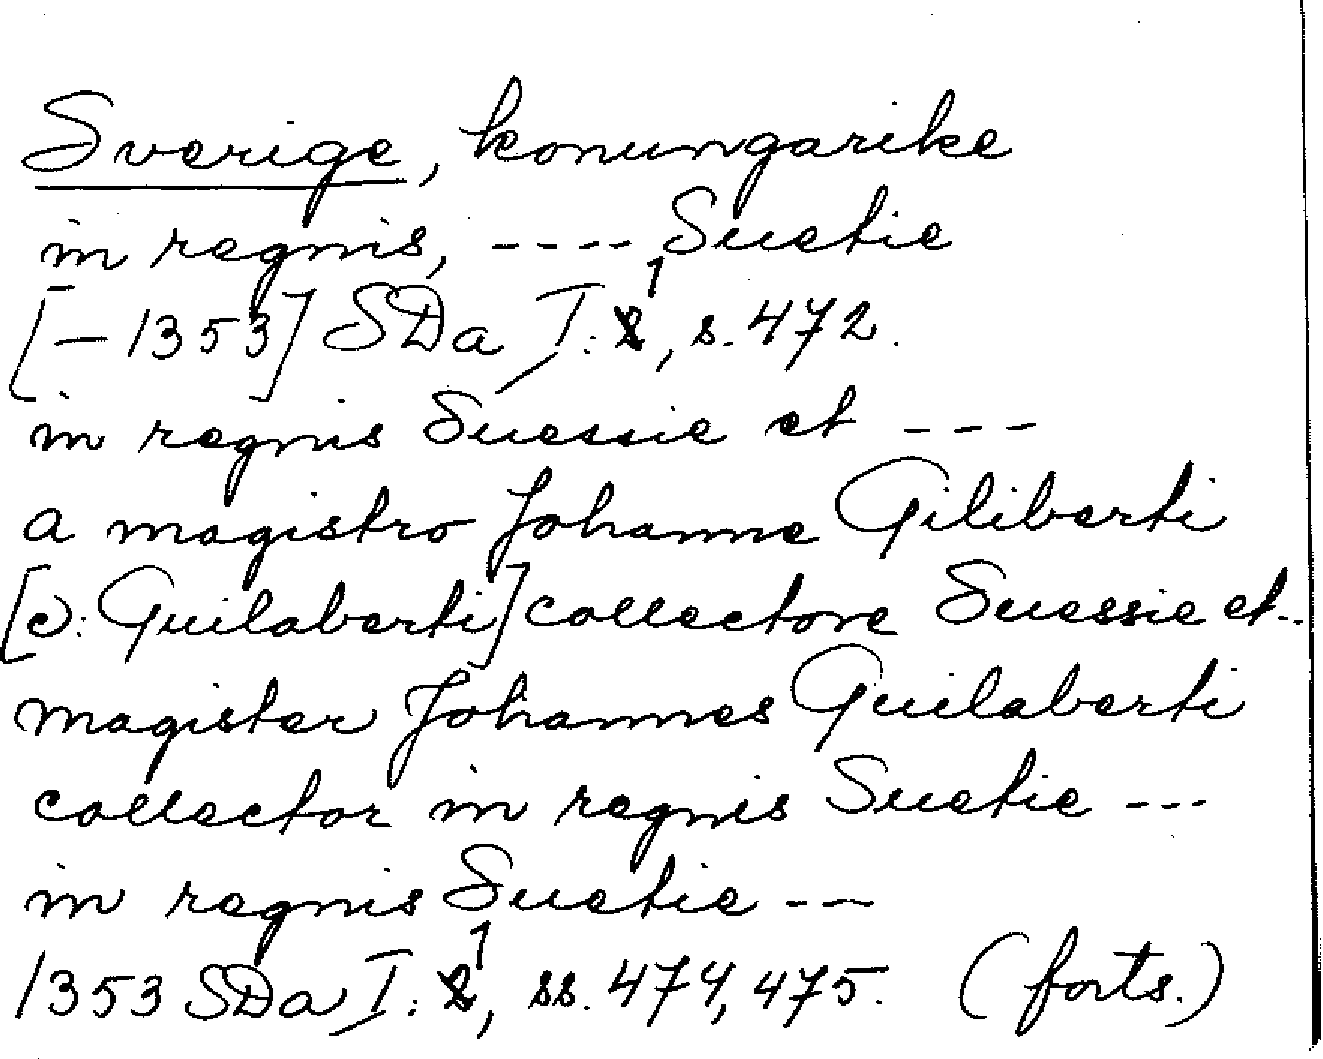 Sverige, konungarike
in regnis, ---- Suetie
[-1353] SDa I:1, s. 472.
in regnis Suessie et ---
a magistro Johanne Giliberti
[ɔ: Guilaberti] collectore Suessie et..
magister Johannes Guilaberti
collector in regnis Suetie ---
in regnis Suetie ---
1353 SDa I:1, ss. 474, 475. (forts.)